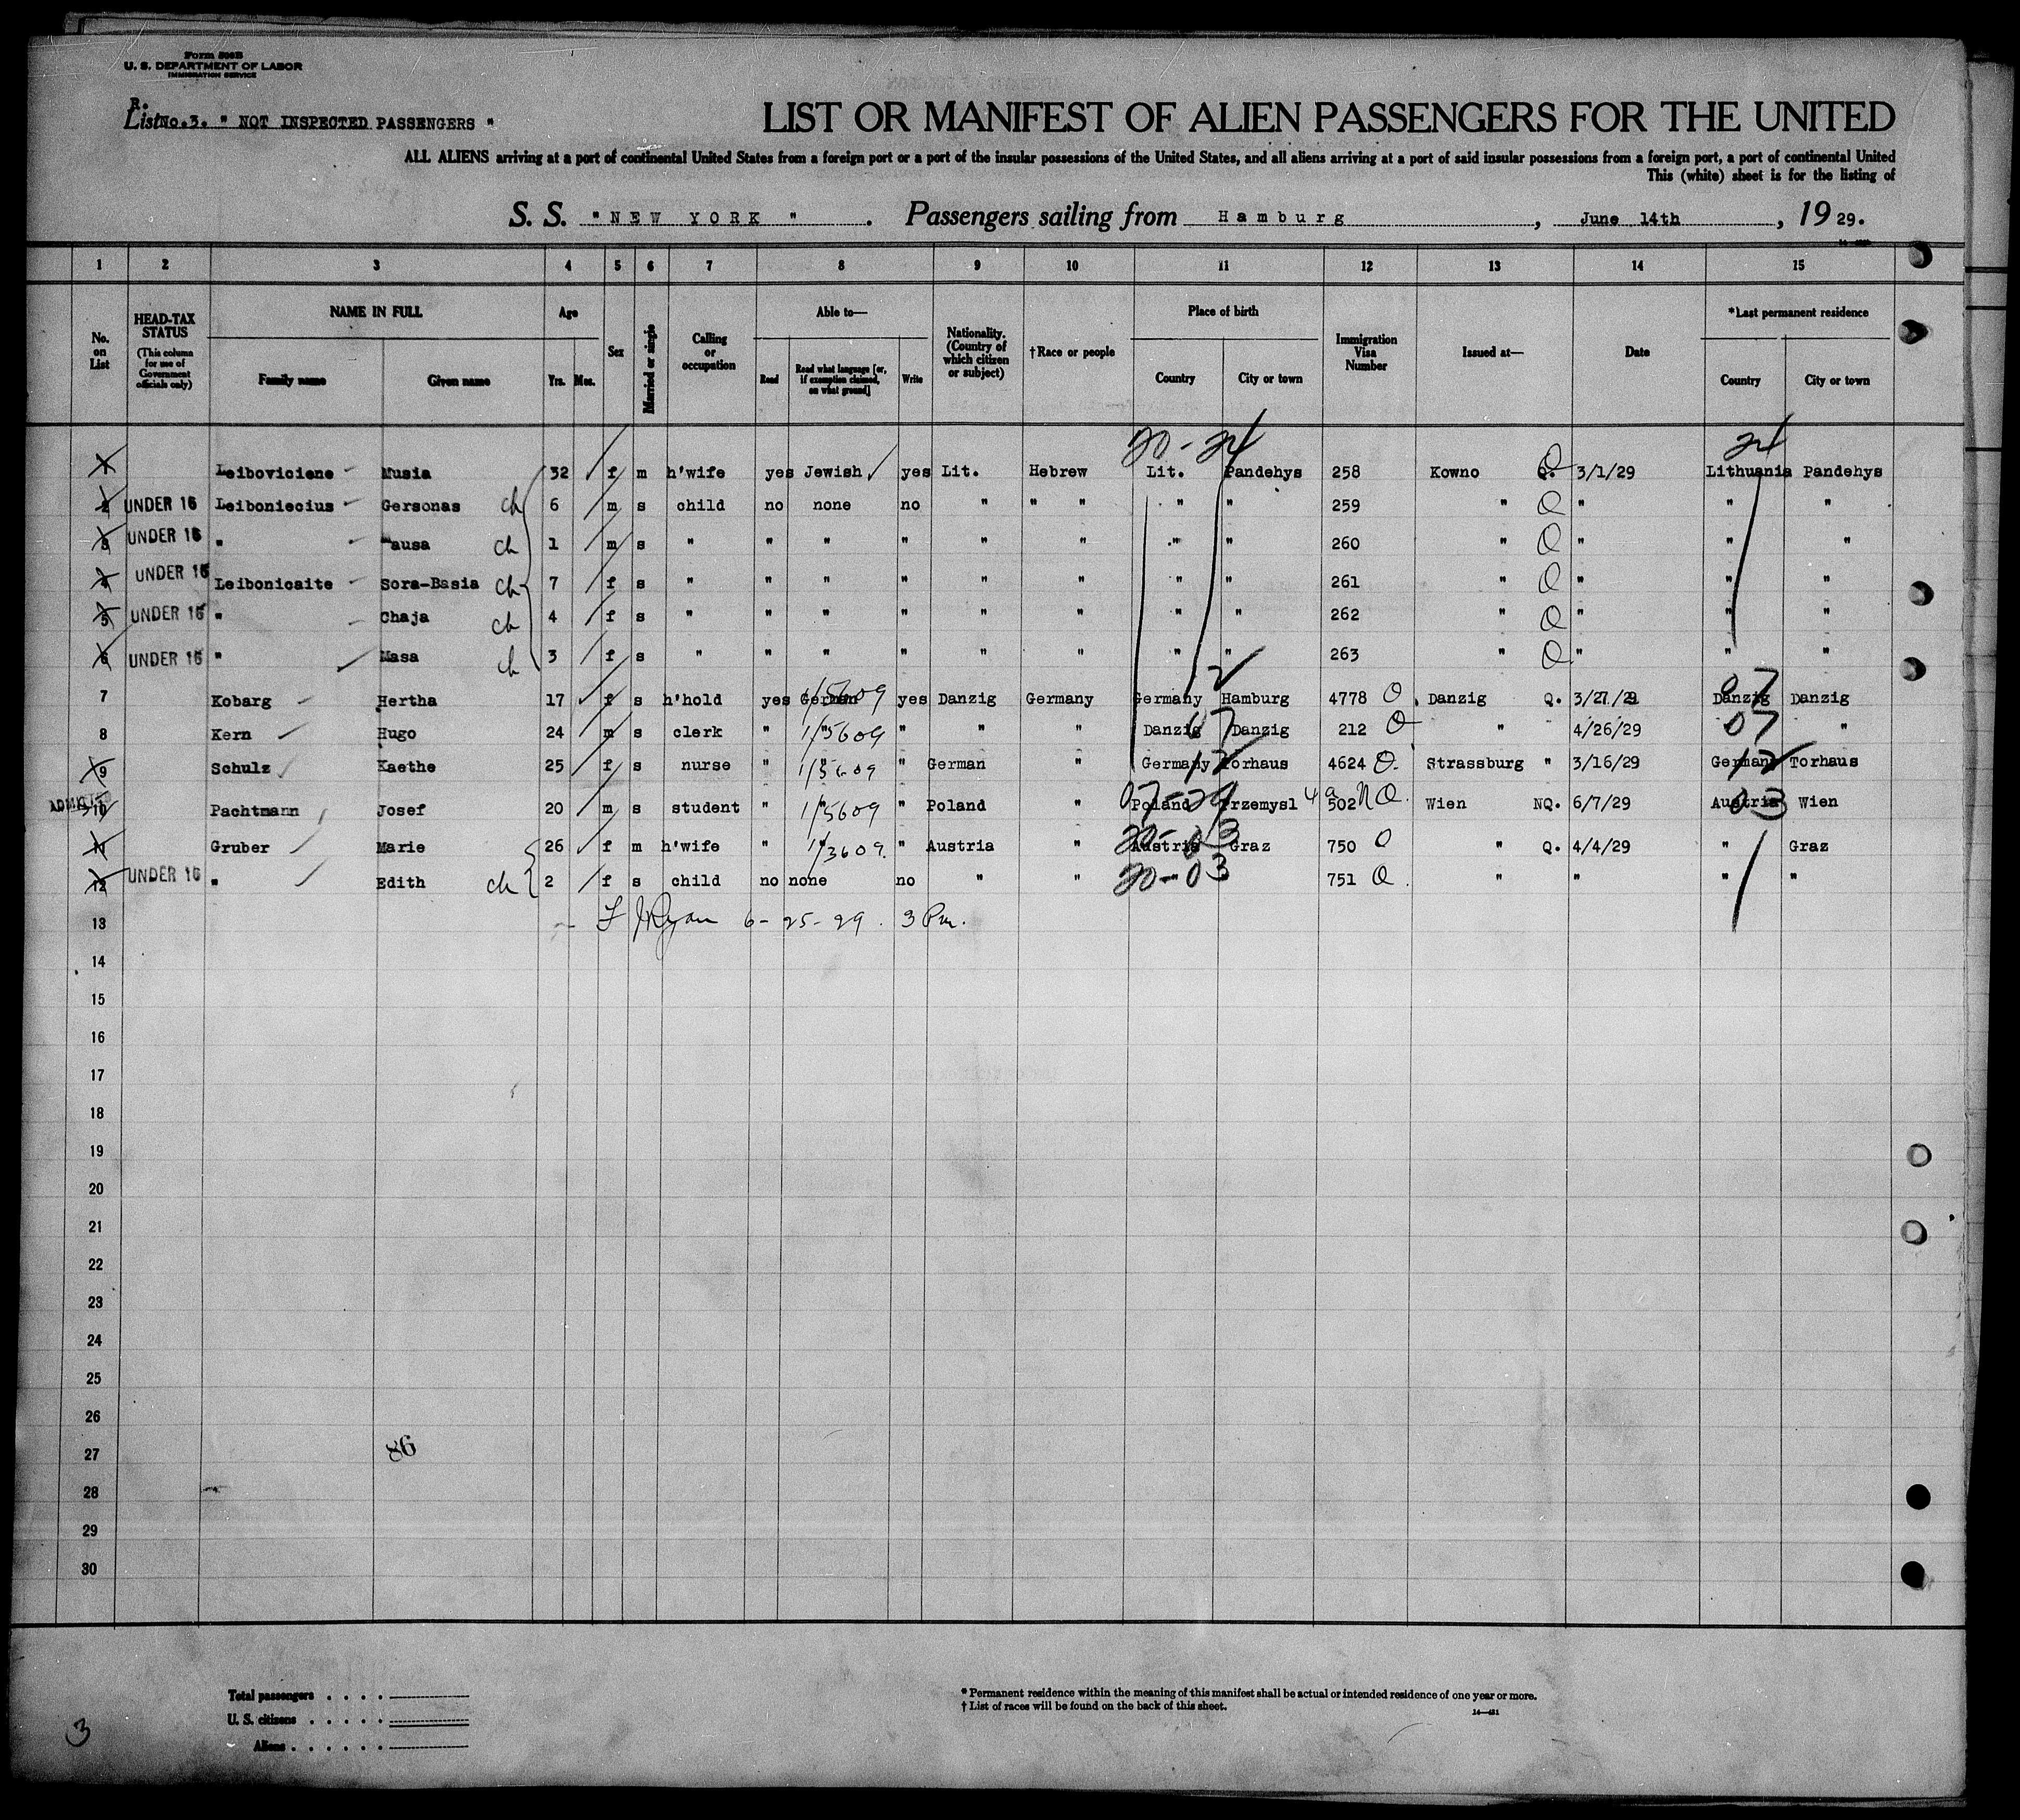 Form 500B
U. S. DEPARTMENT OF LABOR
IMMIGRATION SERVICE
R.
List No. 3. " NOT INSPECTED PASSENGERS "
LIST OR MANIFEST OF ALIEN PASSENGERS FOR THE UNITED
ALL ALIENS arriving at a port of continental United States from a foreign port or a port of the insular possessions of the United States, and all aliens arriving at a port of said insular possessions from a foreign port, a port of continental United
This (white) sheet is for the listing of
S. S. " NEW YORK " . Passengers sailing from Hamburg , June 14th , 19 29.
1 2 3 4 5 6 7 8 9 10 11 12 13 14 15
No. on List
HEAD-TAX STATUS
(This column for use of Government officials only)
NAME IN FULL
Family name Given name
Age
Yrs. Mos.
Sex
Married or single
Calling or occupation
Able to—
Read
Read what language [or, if exemption claimed, on what ground]
Write
Nationality. (Country of which citizen or subject)
† Race or people
Place of birth
Country City or town
Immigration Visa Number
Issued at—
Date
*Last permanent residence
Country City or town
20-24 24
1 Leiboviciene Musia 32 f m h'wife yes Jewish yes Lit. Hebrew Lit. Pandehys 258 Kowno Q. 3/1/29 Lithuania Pandehys
2 UNDER 16 Leiboniecius Gersonas ch 6 m s child no none no " " " " " 259 " " " "
3 UNDER 16 " ausa ch 1 m s " " " " " " " " 260 " " " "
4 UNDER 16 Leibonicaite Sora-Basia ch 7 f s " " " " " " " " 261 " " " "
5 UNDER 16 " Chaja ch 4 f s " " " " " " " " 262 " " " "
6 UNDER 16 " Masa ch 3 f s " " " " " " " " 263 " " " "
7 Kobarg Hertha 17 f s h'hold yes German 1/5609 yes Danzig Germany Germany Hamburg 4778 Danzig Q. 3/27/29 Danzig 07 Danzig
8 Kern Hugo 24 m s clerk " " 1/5609 " " " Danzig 07 Danzig 212 " 4/26/29 07 "
9 Schulz Kaethe 25 f s nurse " " 1/5609 " German " Germany 12 Torhaus 4624 Strassburg " 3/16/29 Germany 12 Torhaus
ADMITTED
10 Pachtmann Josef 20 m s student " " 1/5609 " Poland " Poland 07-29 Przemysl 502 Wien NQ. 6/7/29 Austria 03 Wien
11 Gruber Marie 26 f m h'wife " " 1/3609 " Austria " Austria 20-03 Graz 750 " Q. 4/4/29 " Graz
12 UNDER 16 " Edith ch 2 f s child no none no " " 20-03 751 " " " "
13 6-25-29. 3 Pm.
14
15
16
17
18
19
20
21
22
23
24
25
26
27
86
28
29
30
Total passengers . . . .
U. S. citizens . . . . .
Aliens . . . . . .
3
* Permanent residence within the meaning of this manifest shall be actual or intended residence of one year or more.
† List of races will be found on the back of this sheet.
14—481